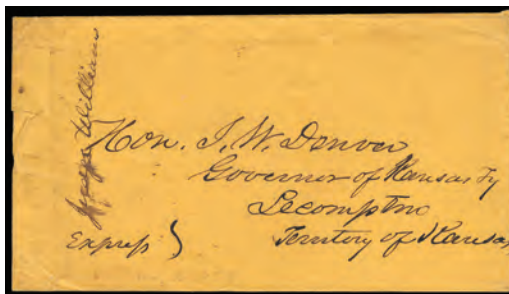 Judge Williams
Hon. J. W. Denver
Governor of Kansas Ty
Lecompton
Territory of Kansas
Express